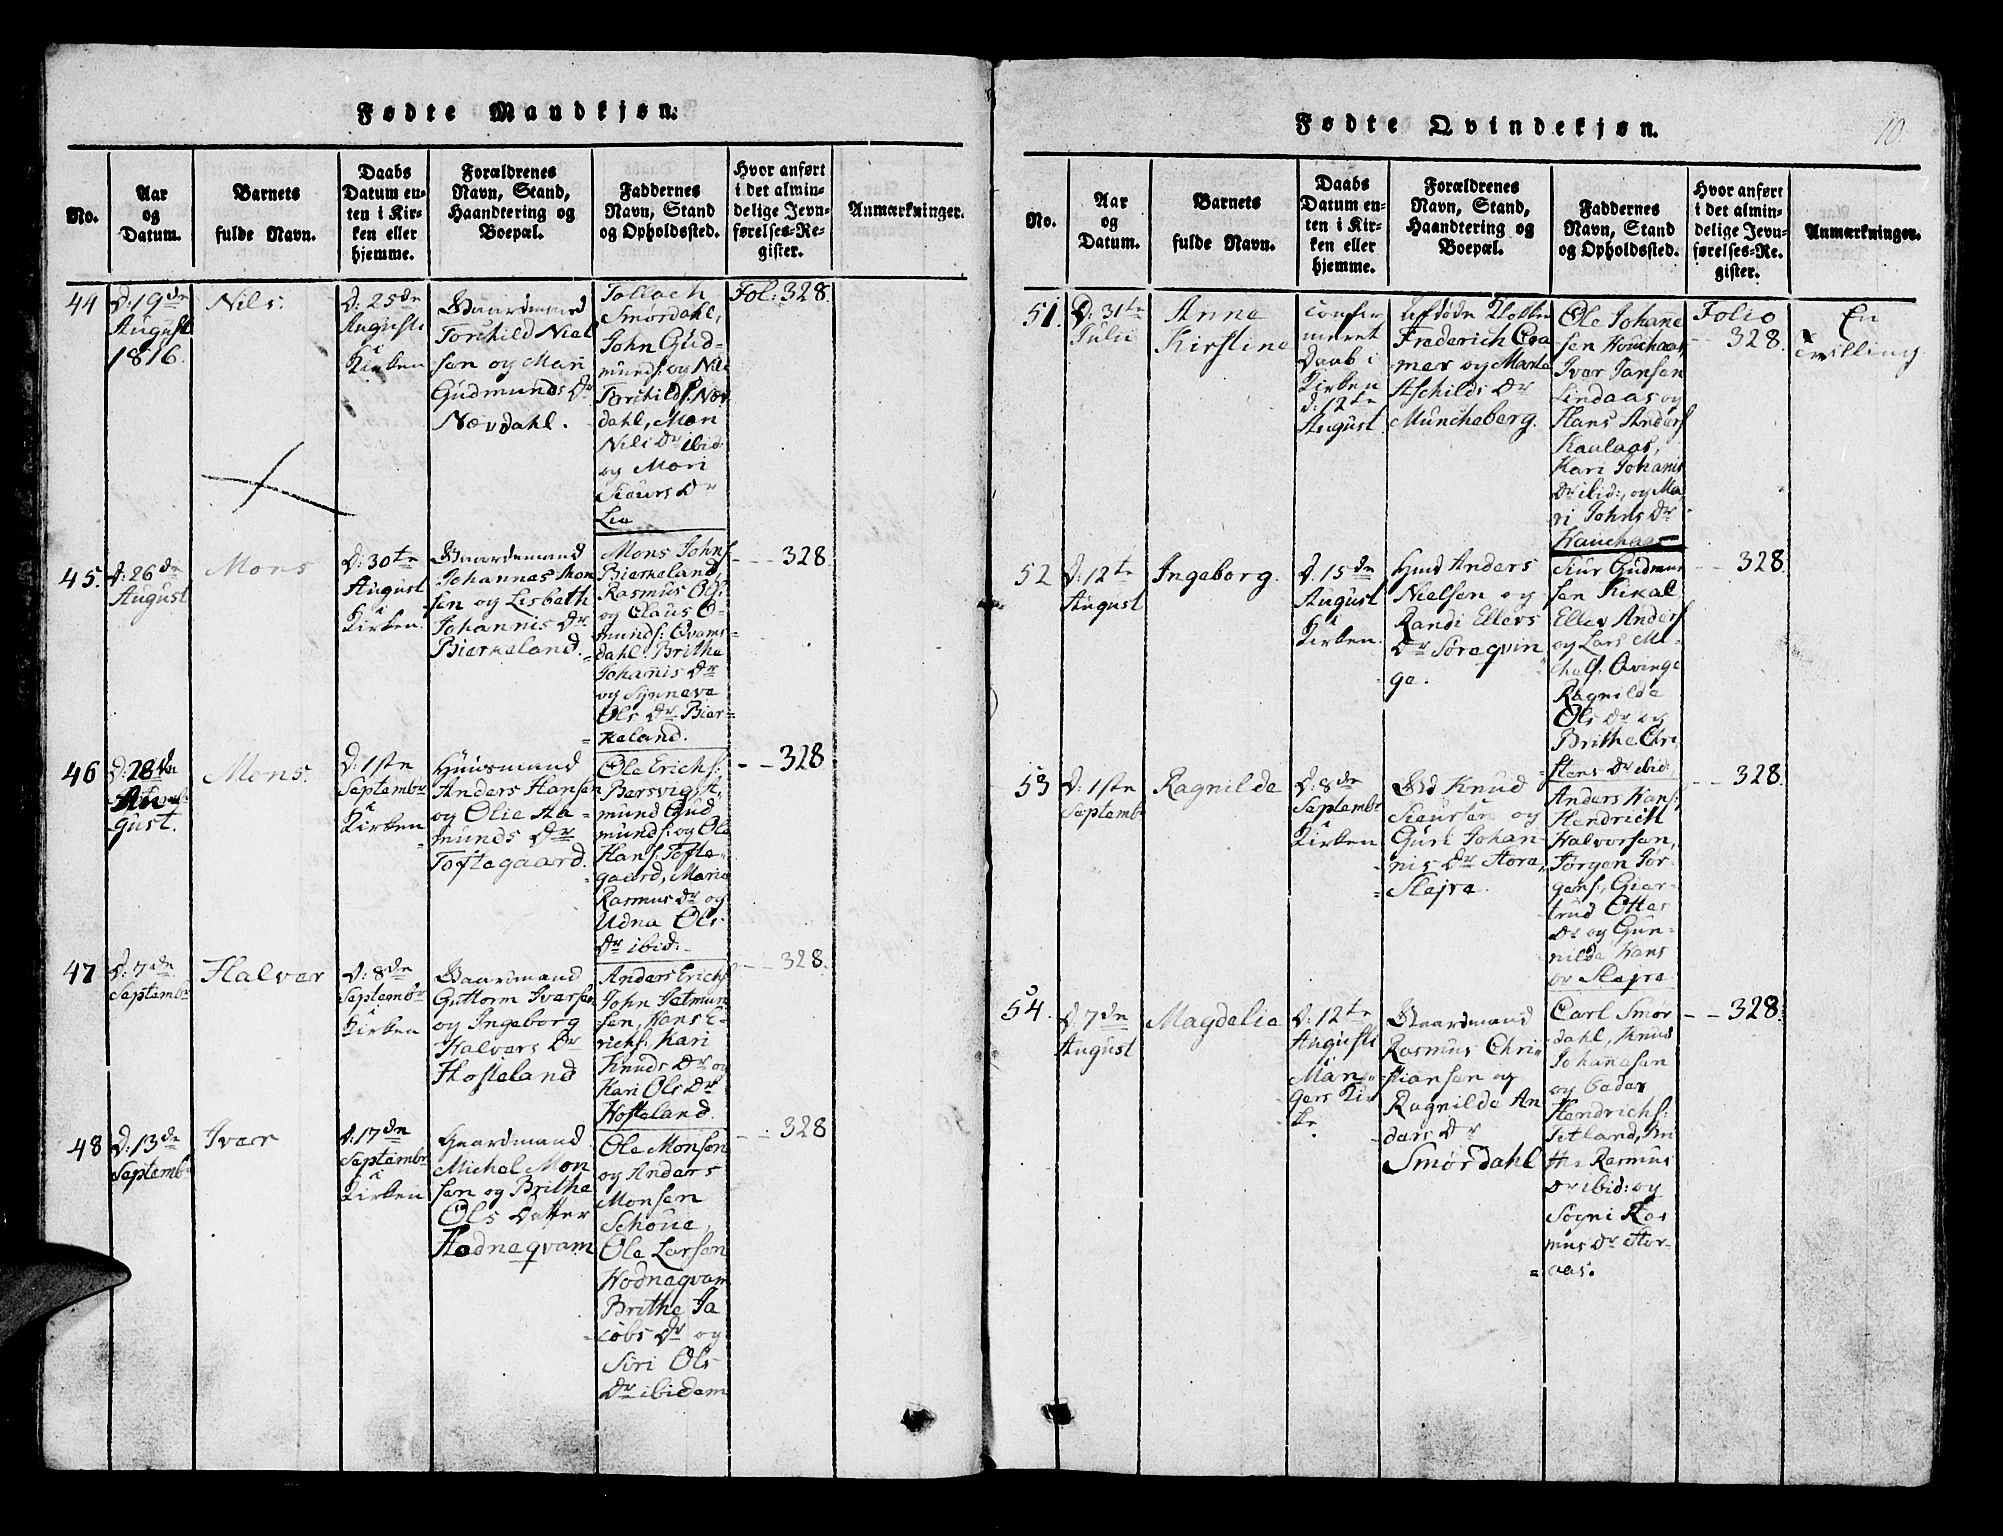 Fødte Mandkjøn.
No.
Aar
og
Datum.
Barnets
fulde Navn.
Daabs
Datum en-
ten i Kir-
ken eller
hjemme.
Forældrenes
Navn, Stand,
Haandtering og
Boepæl.
Faddernes
Navn, Stand
og Opholdssted.
Hvor anført
i det almin-
delige Jevn-
førelses-Re-
gister.
Anmærkninger.
44
D: 19de
August
1816.
Nils.
D: 25de
Augusti
i
Kirken
Gaardmand
Torchild Niel
sen og Mari
Gudmunds Dr
Nævdahl.
Tollach
Smørdahl,
John Gud-
munds: og Nils
Torchilds: Næv
dahl, Mari
Nils Dr ibid
og Mari
Siurs Dr
Lia
Fol: 328.
45.
D: 26de
August
Mons
D: 30te
August
i
Kirken.
Gaardmand
Johannes Mon
sen og Lisbeth
Johannis Dr
Bierkeland.
Mons Johns
Bierkeland
Rasmus Og:
og Olaus O-
munds: Qvams-
dahl. Brithe
Johannis Dr
og Synneve
Ols Dr Bier-
keland.
328
46
D: 28de
Au
gust.
Mons.
D: 1ste
Septembr
i
Kirken
Huusmand
Anders Hansen
og Olie Aa-
munds Dr
Toftegaard.
Ole Erichs:
Bersvig A,
mund Gud
munds: og Ole
Hans: Tofte-
gaard, Marie
Rasmus Dr og
Udna Ols
Dr ibid:
328
47
D: 7de
Septembr
Halvor
D: 8de
Septembr
i
Kirken
Gaardmand
Guttorm Iversen
og Ingeborg
Halvors Dr
Hosteland
Anders Erichs
John Setmun
sen, Hans E-
richs: Kari
Knuds Dr og
Kari Ols Dr
Hosteland.
328.
48
D: 13de
Septembr
Iver
D: 17de
Septembr
i
Kirken
Gaardmand
Michel Mon
sen og Brithe
Ols Datter
Hodneqvam
Ole Monsen
og Anders
Monsen
Schoue,
Ole Larsen
Hodneqvam
Brithe Ja
cobs Dr og
Siri Ols
Dr ibidem
328
Fødte Qvindekjøn.
10.
No.
Aar
og
Datum.
Barnets
fulde Navn.
Daabs
Datum en-
ten i Kir-
ken eller
hjemme.
Forældrenes
Navn, Stand,
Haandtering og
Boepæl.
Faddernes
Navn, Stand
og Opholdssted.
Hvor anført
i det almin-
delige Jevn-
førelses-Re-
gister.
Anmærkninger.
51.
D: 31te
Julii
Anne
Kirstine
confir
meret
Daab i
Kirken
d: 12te
August
Frederich Cra
mer og Marte
Aschilds Dr
Muncheberg.
Ole Johane
sen Houchaas,
Iver Jansen
Lindaas og
Hans Anders
Kaalaas,
Kari Johanis
Dr ibid:, og Ma
ri Johns Dr
Hauchaas
Folio
328.
En
Tvilling
52
D: 12te
August
Ingeborg.
D: 15de
August
i
Kirken.
Hmd Anders
Nielsen og
Randi Ellevs
Dr Søreqvin
ge.
Siur Gudmun
sen Kikal
Ellev Anders
og Lars Mi-
chels. Qvinge
Ragnilde
Ols Dr og
Brithe Chri
stens Dr ibid.
328.
53
D: 1ste
Septembr
Ragnilde
D: 8de
Septembr
i
Kirken
Gd Knud
Siursen og
Guri Johan-
nis Dr Store
Slejre.
Anders Hans:
Hendrich
Halvorsen,
Jørgen Jør
gens:, Gier-
trud Ottes
Dr og Gun-
nilde Hans
Dr Slejre.
328.
54.
D: 7de
August
Magdelie
D: 12te
Augusti
i
Man-
gers Kir
ke
Gaardmand
Rasmus Chri-
stiansen og
Ragnilde An
ders Dr
Smørdahl
Carl Smør
dahl, Knud
Johannesen
og Peder
Hendrichs:
Tetland, Bri
the Rasmus
Dr ibid: og
Sogni Ras
mus Dr Stor-
aas.
328.